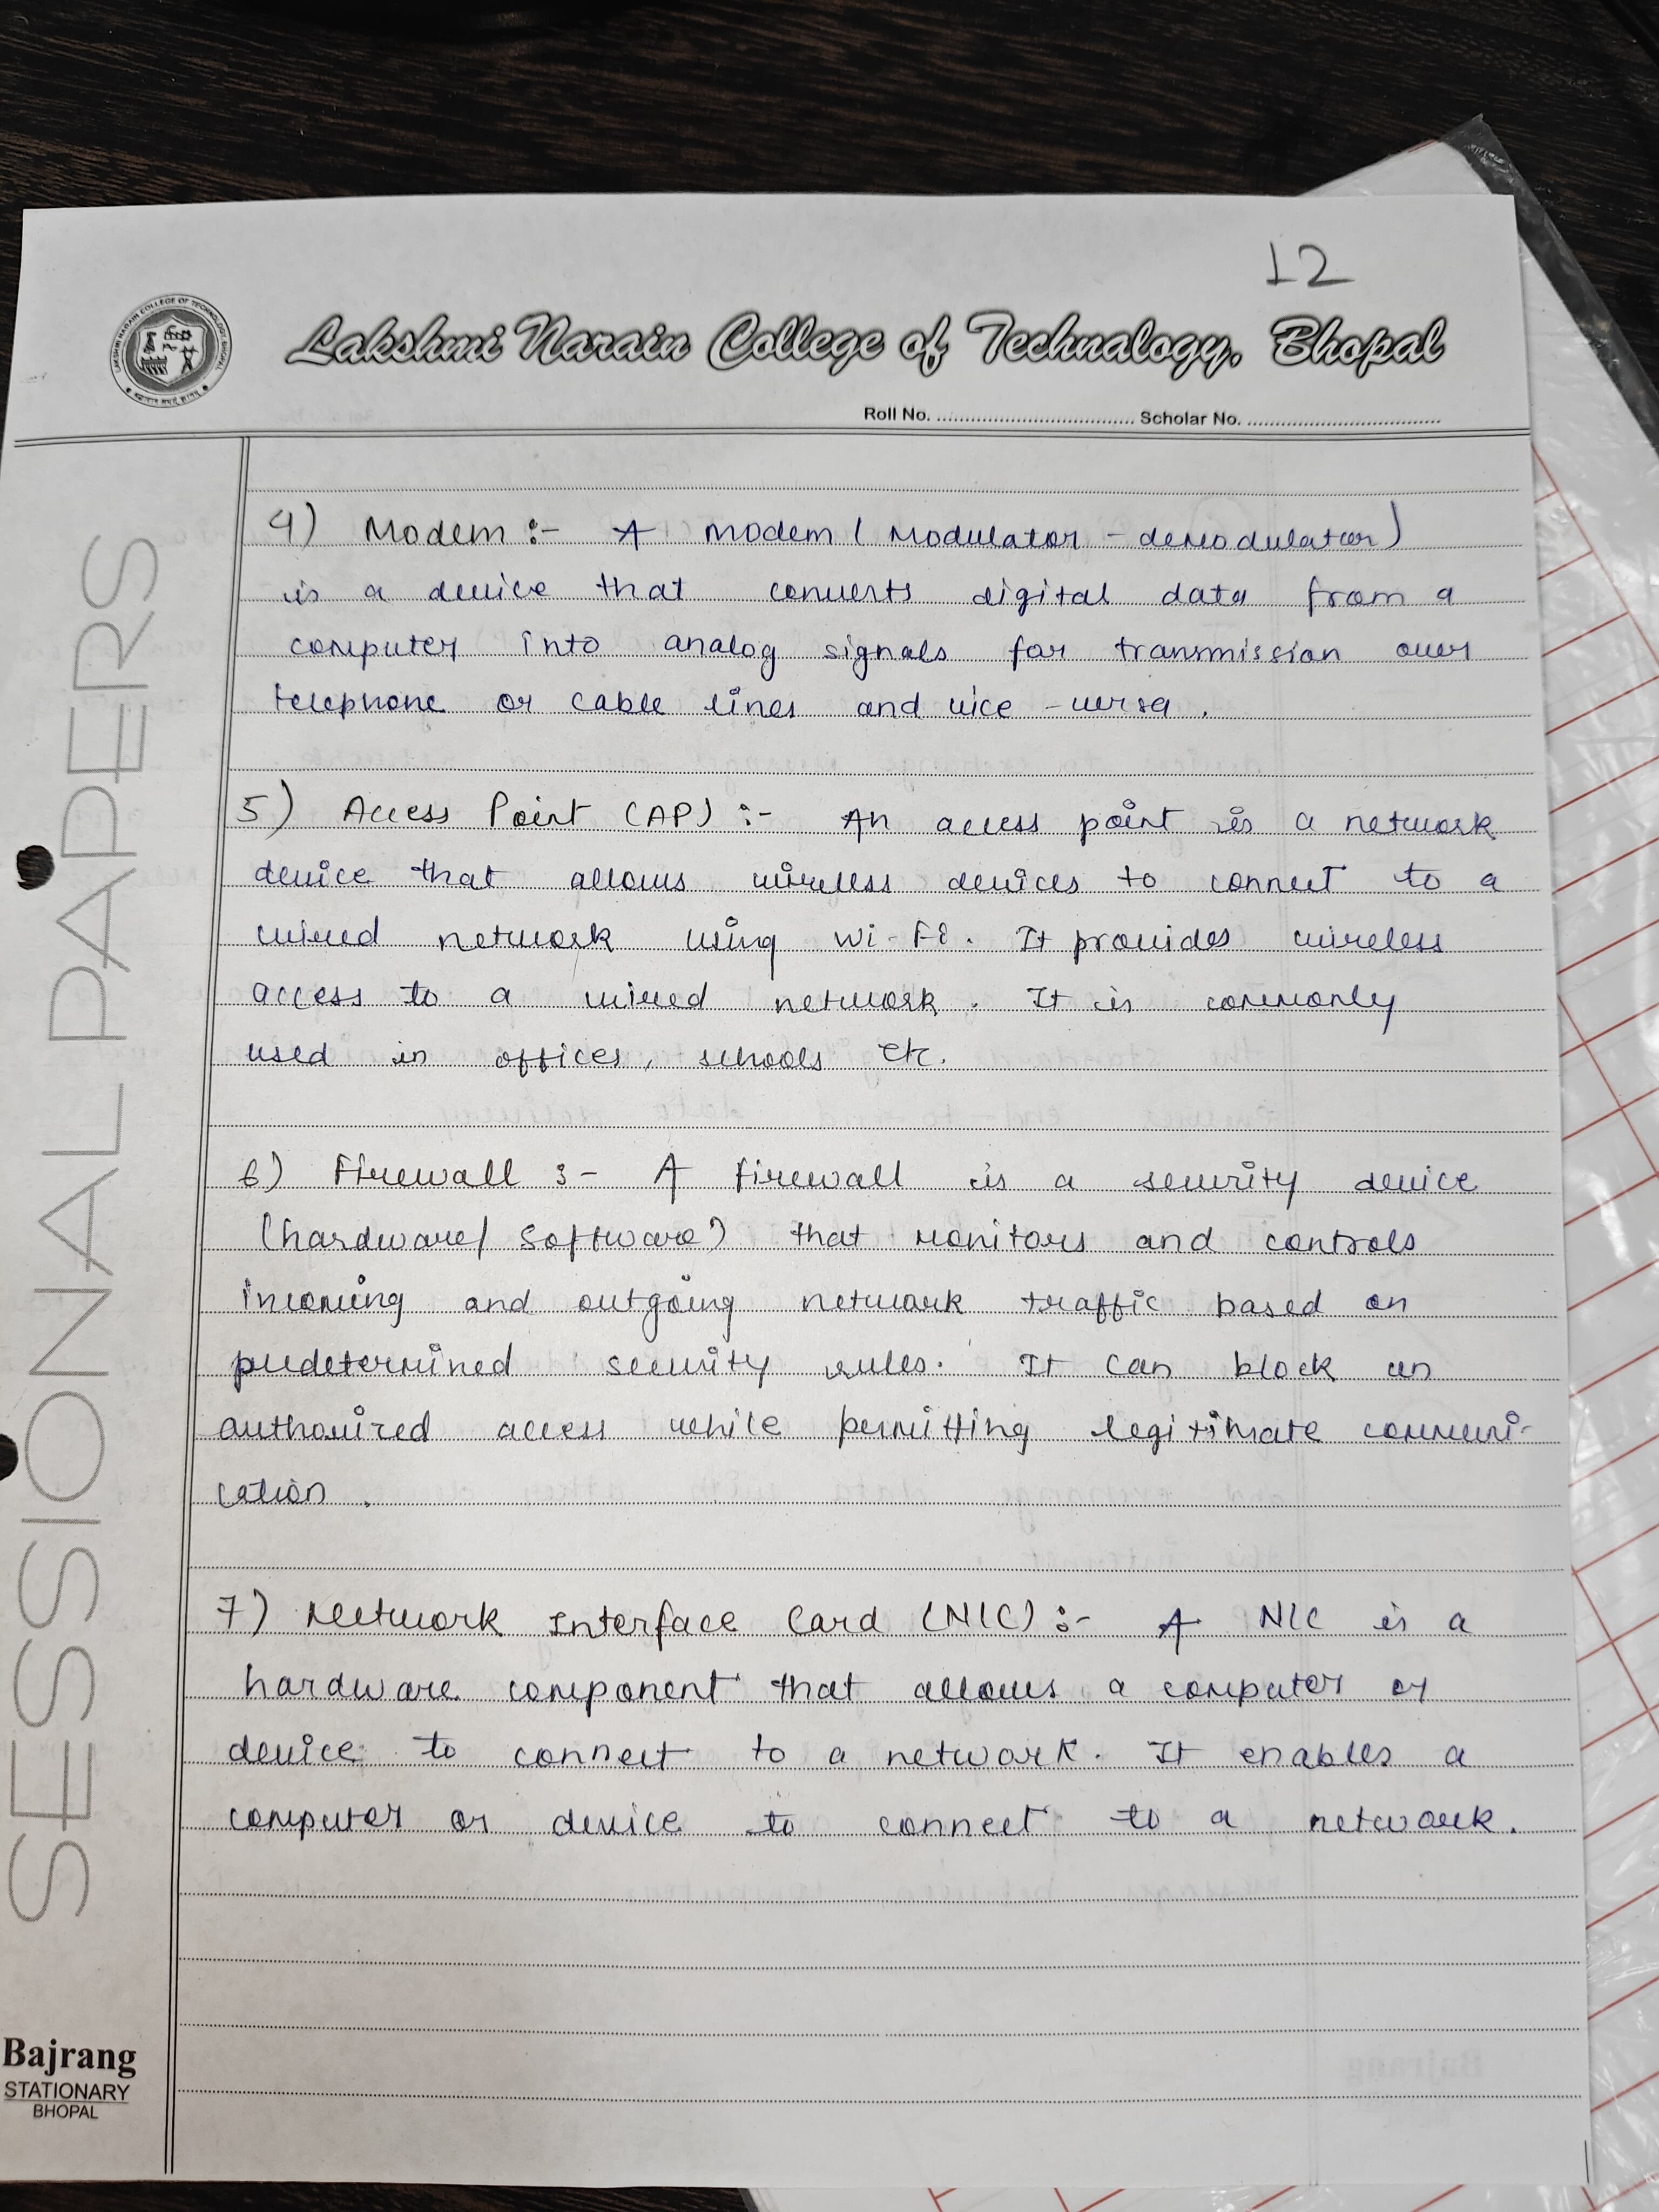 12
Lakshmi Narain College of Technalogy, Bhopal
Roll No. .................................. Scholar No. ..................................
SESSIONAL PAPERS
4) Modem :- A modem ( Modulator - demodulator)
is a device that converts digital data from a
computer into analog signals for transmission over
telephone or cable lines and vice -versa .
5) Access Point (AP) :- An access point is a network
device that allows wireless devices to connect to a
wired network using Wi-Fi. It provides wireless
access to a wired network. It is commonly
used in offices, schools etc.
6) Firewall :- A firewall is a security device
(hardware/ software) that monitors and controls
incoming and outgoing network traffic based on
predetermined security rules. It can block un
authorized access while permitting legitimate communi-
cation .
7) Network Interface Card (NIC) :- A NIC is a
hardware component that allows a computer or
device to connect to a network. It enables a
computer or device to connect to a network.
Bajrang
STATIONARY
BHOPAL